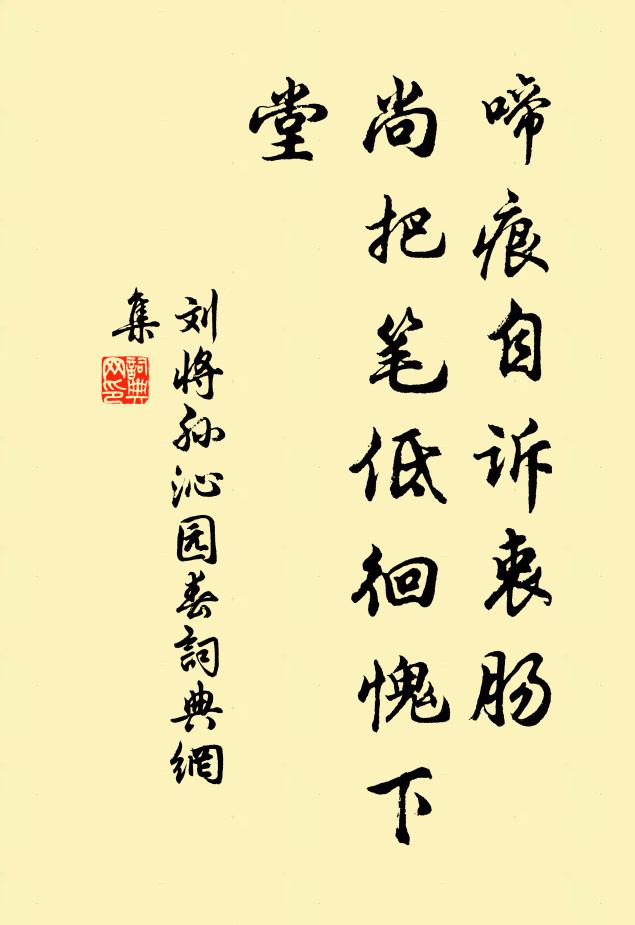 啼痕自诉衷肠
尚把笔低徊愧下
堂
刘将孙沁园春詞典網
集
詞典
网印